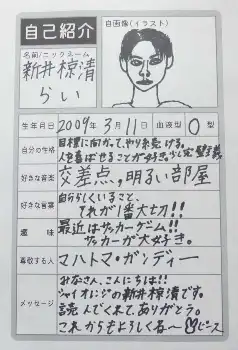 自己紹介
自画像(イラスト)
名前/ニックネーム
新井椋清
らい
生年月日 2009年 3月 11日 血液型 O 型
自分の性格
目標に向かって、やり続ける。
人を喜ばせることが好き。少し完璧主義
好きな音楽 交差点, 明るい部屋
好きな言葉
自分らしくいること、
それが1番大切!!
趣味
最近はサッカーゲーム!!
サッカーが大好き。
尊敬する人 マハトマ・ガンディー
メッセージ
みなさん、こんにちは!!
ジャイオレンジの新井椋清です。
読んでくれて、ありがとう。
これからもよろしくね〜 ピース